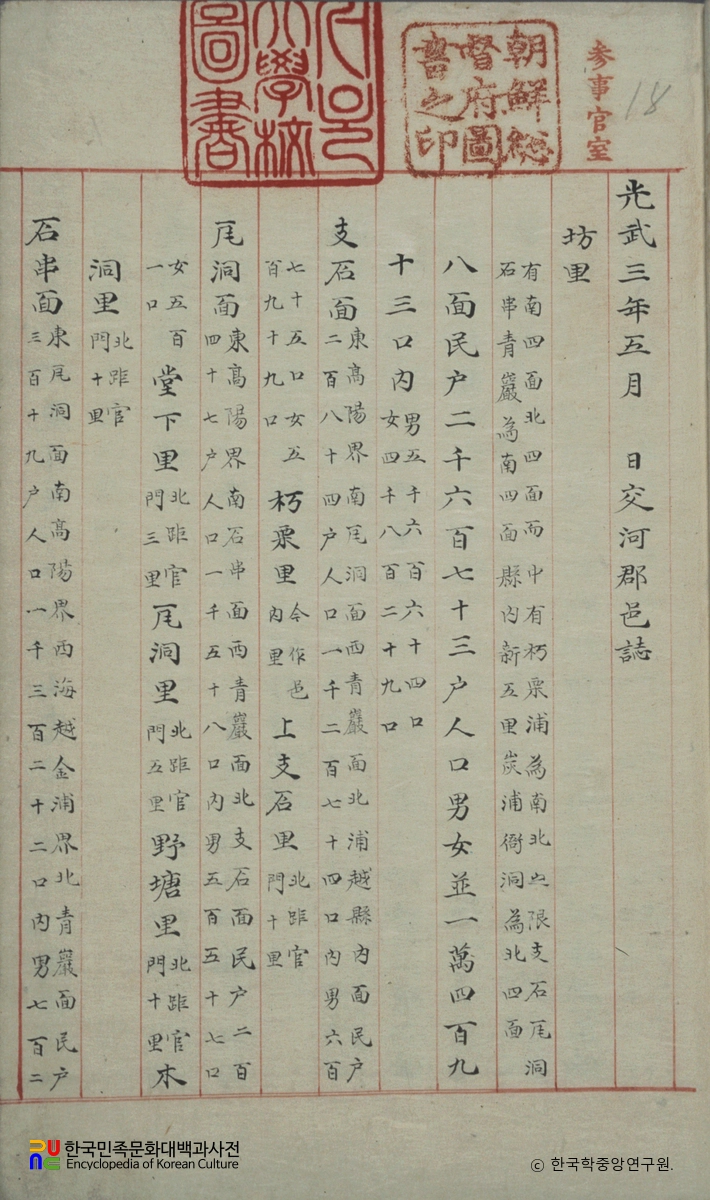 参事官室
18
朝鮮總
督府圖
書之印
서울
大學校
圖書
光武三年五月 日交河郡邑誌
坊里
有南四面北四面而中有朽栗浦為南北之限支石瓦洞
石串青巖為南四面縣内新五里炭浦衙洞為北四面
八面民户二千六百七十三户人口男女並一萬四百九
十三口内 男五千六百六十四口
女四千八百二十九口
支石面 東高陽界南瓦洞面西青巖面北浦越縣内面民户
二百八十四户人口一千二百七十四口内男六百
七十五口女五
百九十九口
朽栗里 今作邑
内里
上支石里 北距官
門十里
瓦洞面 東高陽界南石串面西青巖面北支石面民户二百
四十七户人口一千五十八口内男五百五十七口
女五百
一口
堂下里 北距官
門三里
瓦洞里 北距官
門五里
野塘里 北距官
門十里
木
洞里 北距官
門十里
石串面 東瓦洞面南高陽界西海越金浦界北青巖面民户
三百十九户人口一千三百二十二口内男七百二
한국민족문화대백과사전
Encyclopedia of Korean Culture
© 한국학중앙연구원.